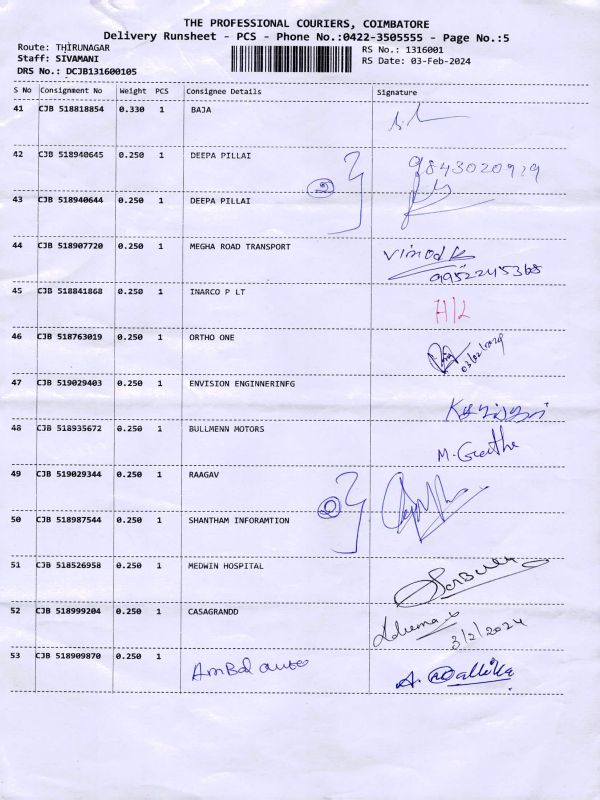 THE PROFESSIONAL COURIERS, COIMBATORE
Delivery Runsheet - PCS - Phone No.:0422-3505555 - Page No.:5
Route: THIRUNAGAR RS No.: 1316001
Staff: SIVAMANI RS Date: 03-Feb-2024
DRS No.: DCJB131600105
S No Consignment No Weight PCS Consignee Details Signature
41 CJB 518818854 0.330 1 BAJA
42 CJB 518940645 0.250 1 DEEPA PILLAI
43 CJB 518940644 0.250 1 DEEPA PILLAI
44 CJB 518907720 0.250 1 MEGHA ROAD TRANSPORT Vinod K
9952245368
45 CJB 518841868 0.250 1 INARCO P LT H/L
46 CJB 518763019 0.250 1 ORTHO ONE 03/02/2024
47 CJB 519029403 0.250 1 ENVISION ENGINNERINFG
48 CJB 518935672 0.250 1 BULLMENN MOTORS M. Geetha
49 CJB 519029344 0.250 1 RAAGAV
50 CJB 518987544 0.250 1 SHANTHAM INFORAMTION
51 CJB 518526958 0.250 1 MEDWIN HOSPITAL
52 CJB 518999204 0.250 1 CASAGRANDD 3/2/2024
53 CJB 518909870 0.250 1 AmBal auto